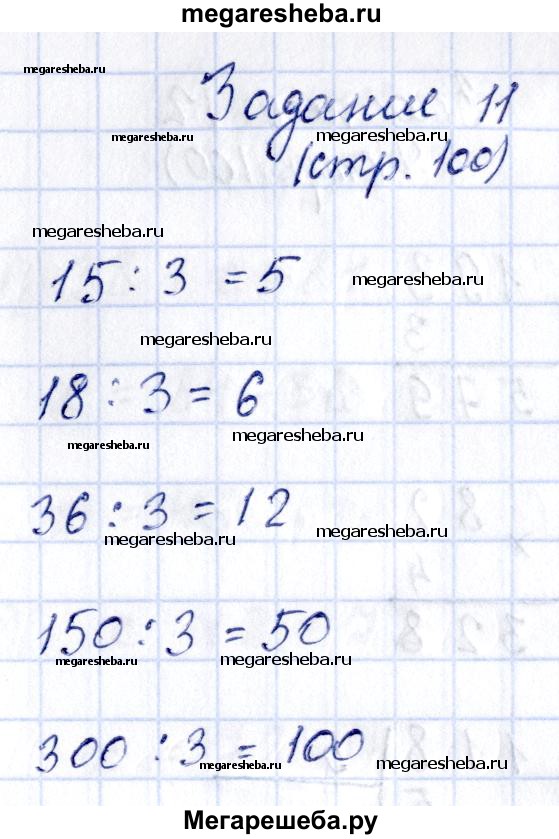 megaresheba.ru
megaresheba.ru
Задание 11
megaresheba.ru megaresheba.ru
(стр. 100)
megaresheba.ru
15 : 3 = 5 megaresheba.ru
megaresheba.ru
18 : 3 = 6
megaresheba.ru megaresheba.ru
36 : 3 = 12
megaresheba.ru megaresheba.ru
150 : 3 = 50
megaresheba.ru megaresheba.ru
300 : 3 = 100
megaresheba.ru megaresheba.ru
Мегарешеба.ру